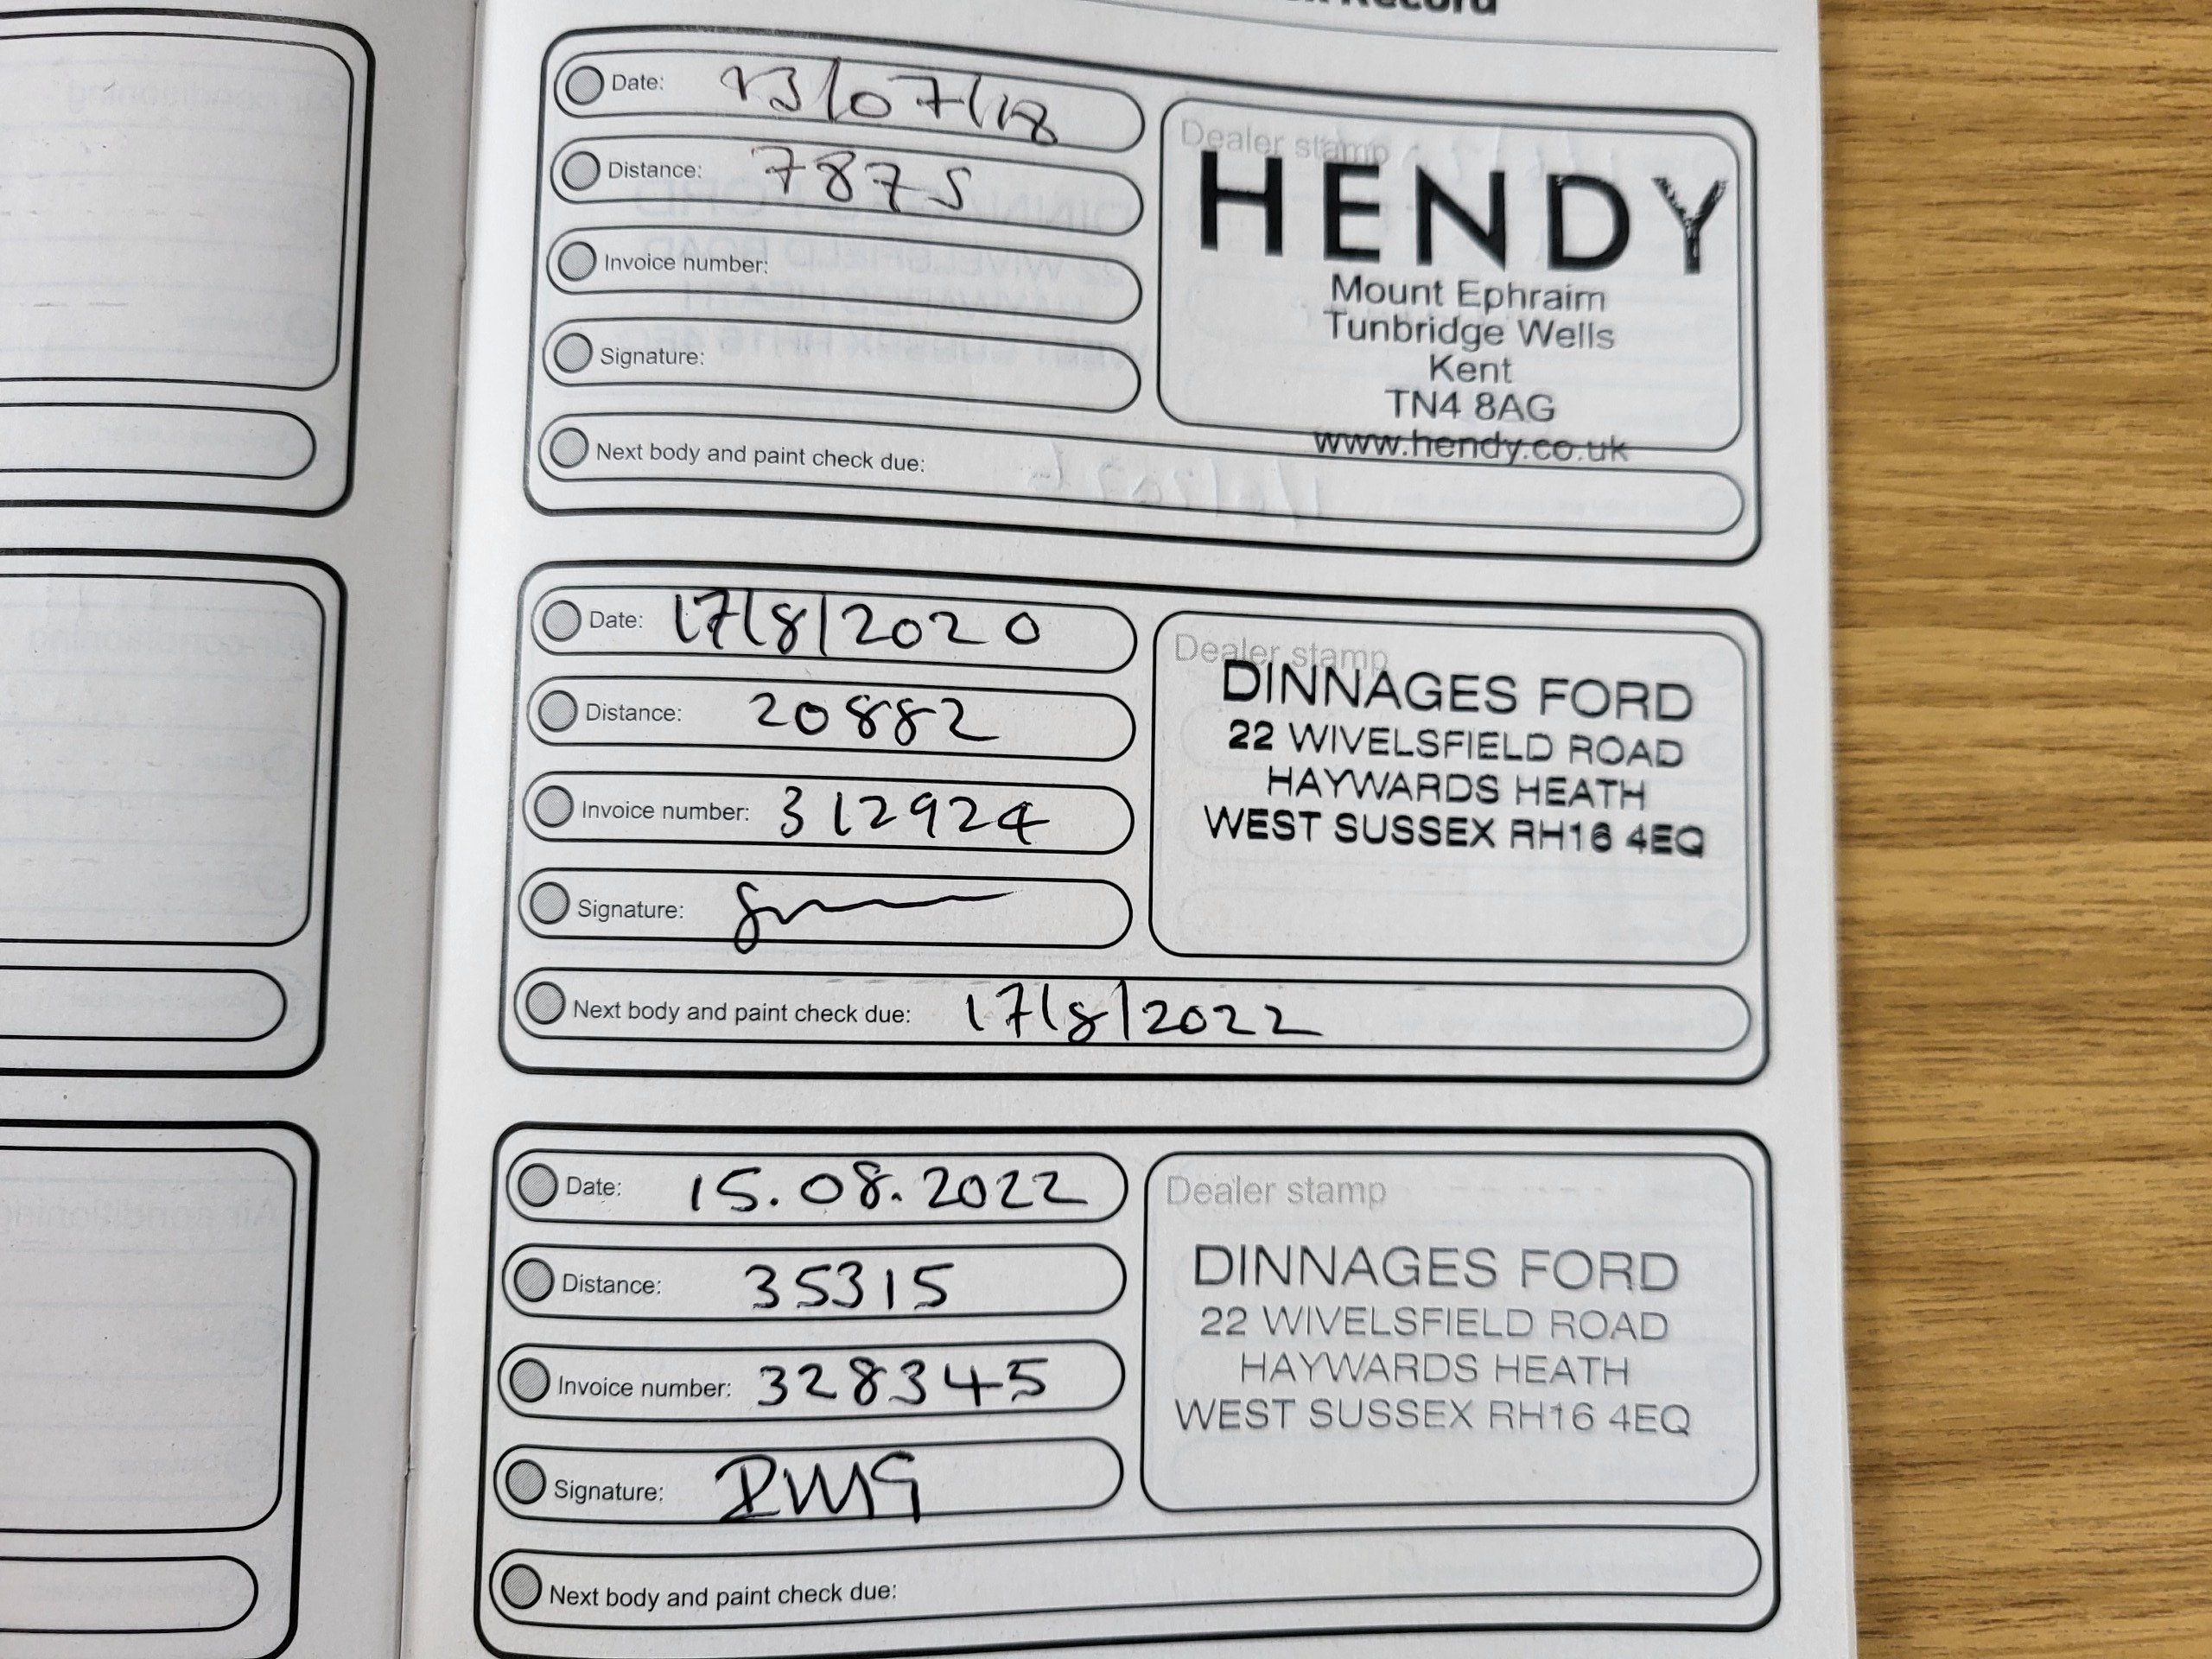 Record
Date: 23/07/18
Distance: 7875
Invoice number:
Signature:
Next body and paint check due:
Dealer stamp
HENDY
Mount Ephraim
Tunbridge Wells
Kent
TN4 8AG
www.hendy.co.uk
Date: 17/8/2020
Distance: 20882
Invoice number: 312924
Signature:
Next body and paint check due: 17/8/2022
Dealer stamp
DINNAGES FORD
22 WIVELSFIELD ROAD
HAYWARDS HEATH
WEST SUSSEX RH16 4EQ
Date: 15.08.2022
Distance: 35315
Invoice number: 328345
Signature:
Next body and paint check due:
Dealer stamp
DINNAGES FORD
22 WIVELSFIELD ROAD
HAYWARDS HEATH
WEST SUSSEX RH16 4EQ